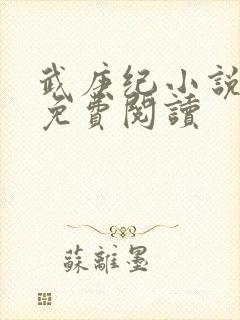 武庚纪小說
免費閱讀
蘇離墨